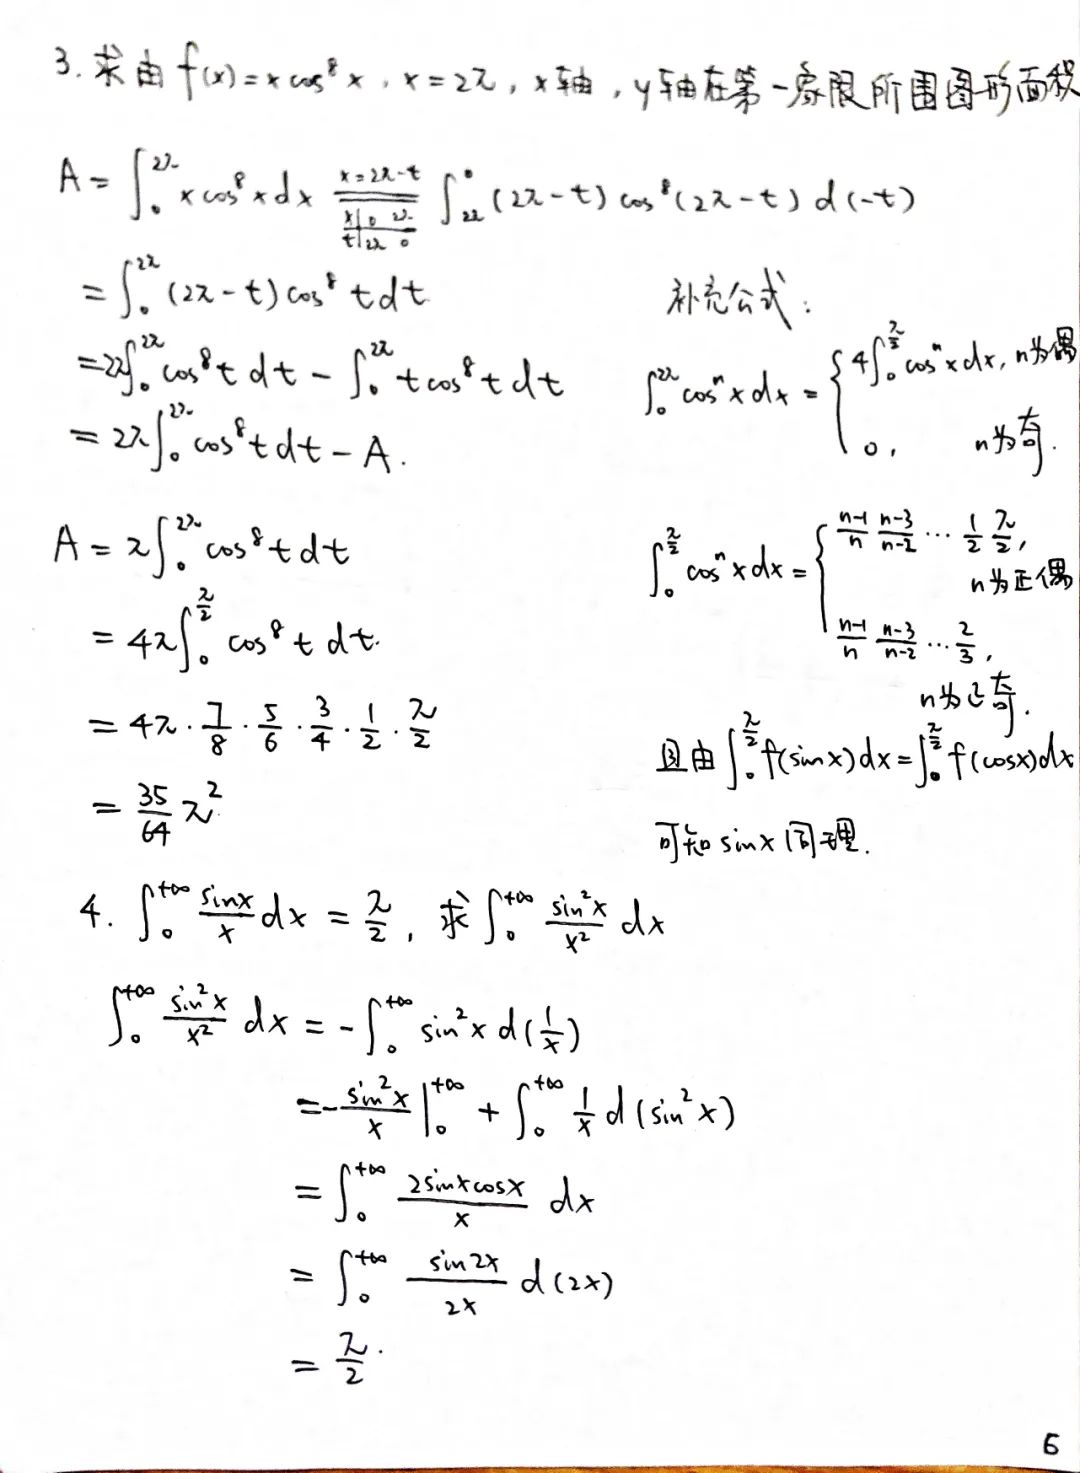 3. 求由 f(x)=x cos⁸x, x=2π, x轴, y轴在第一象限所围图形面积
A = ∫₀^{2π} x cos⁸x dx \xlongequal[x|0 2π; t|2π 0]{x=2π-t} ∫_{2π}^{0} (2π-t) cos⁸(2π-t) d(-t)
= ∫₀^{2π} (2π-t) cos⁸t dt
= 2π∫₀^{2π} cos⁸t dt - ∫₀^{2π} t cos⁸t dt
= 2π∫₀^{2π} cos⁸t dt - A.
A = π∫₀^{2π} cos⁸t dt
= 4π∫₀^{π/2} cos⁸t dt.
= 4π · 7/8 · 5/6 · 3/4 · 1/2 · π/2
= 35/64 π².
补充公式:
∫₀^{2π} cosⁿx dx = { 4∫₀^{π/2} cosⁿx dx, n为偶
0, n为奇.
∫₀^{π/2} cosⁿx dx = { (n-1)/n (n-3)/(n-2) … 1/2 π/2,
n为正偶
(n-1)/n (n-3)/(n-2) … 2/3,
n为正奇.
且由 ∫₀^{π/2} f(sinx)dx = ∫₀^{π/2} f(cosx)dx
可知 sinx 同理.
4. ∫₀^{+∞} sinx/x dx = π/2, 求 ∫₀^{+∞} sin²x/x² dx
∫₀^{+∞} sin²x/x² dx = -∫₀^{+∞} sin²x d(1/x)
= -sin²x/x |₀^{+∞} + ∫₀^{+∞} 1/x d(sin²x)
= ∫₀^{+∞} 2sinxcosx/x dx
= ∫₀^{+∞} sin2x/2x d(2x)
= π/2.
6